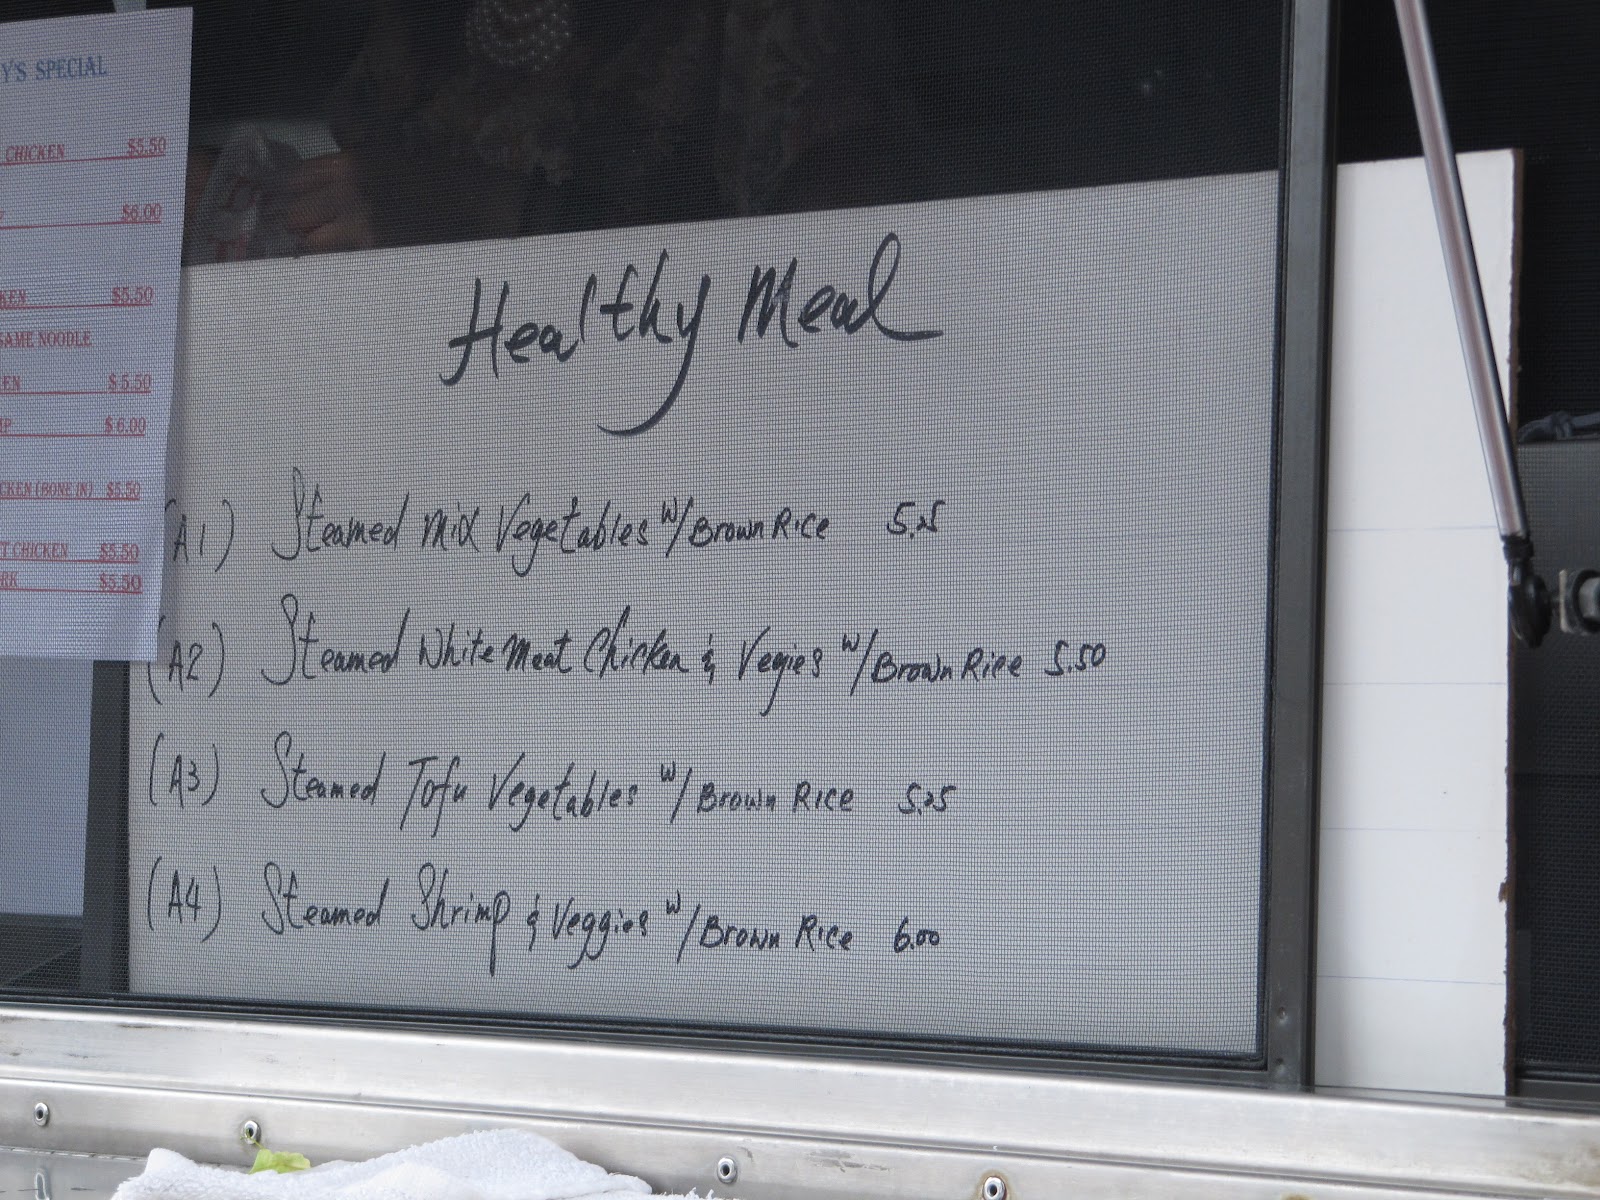 Y'S SPECIAL
CHICKEN $5.50
$6.00
KEN $5.50
SAME NOODLE
EN $5.50
MP $6.00
CKEN (BONE IN) $5.50
T CHICKEN $5.50
RK $5.50
Healthy Meal
(A1) Steamed mix Vegetables w/Brown Rice 5.25
(A2) Steamed White meat Chicken & Vegies w/Brown Rice 5.50
(A3) Steamed Tofu Vegetables w/Brown Rice 5.25
(A4) Steamed Shrimp & Veggies w/Brown Rice 6.00